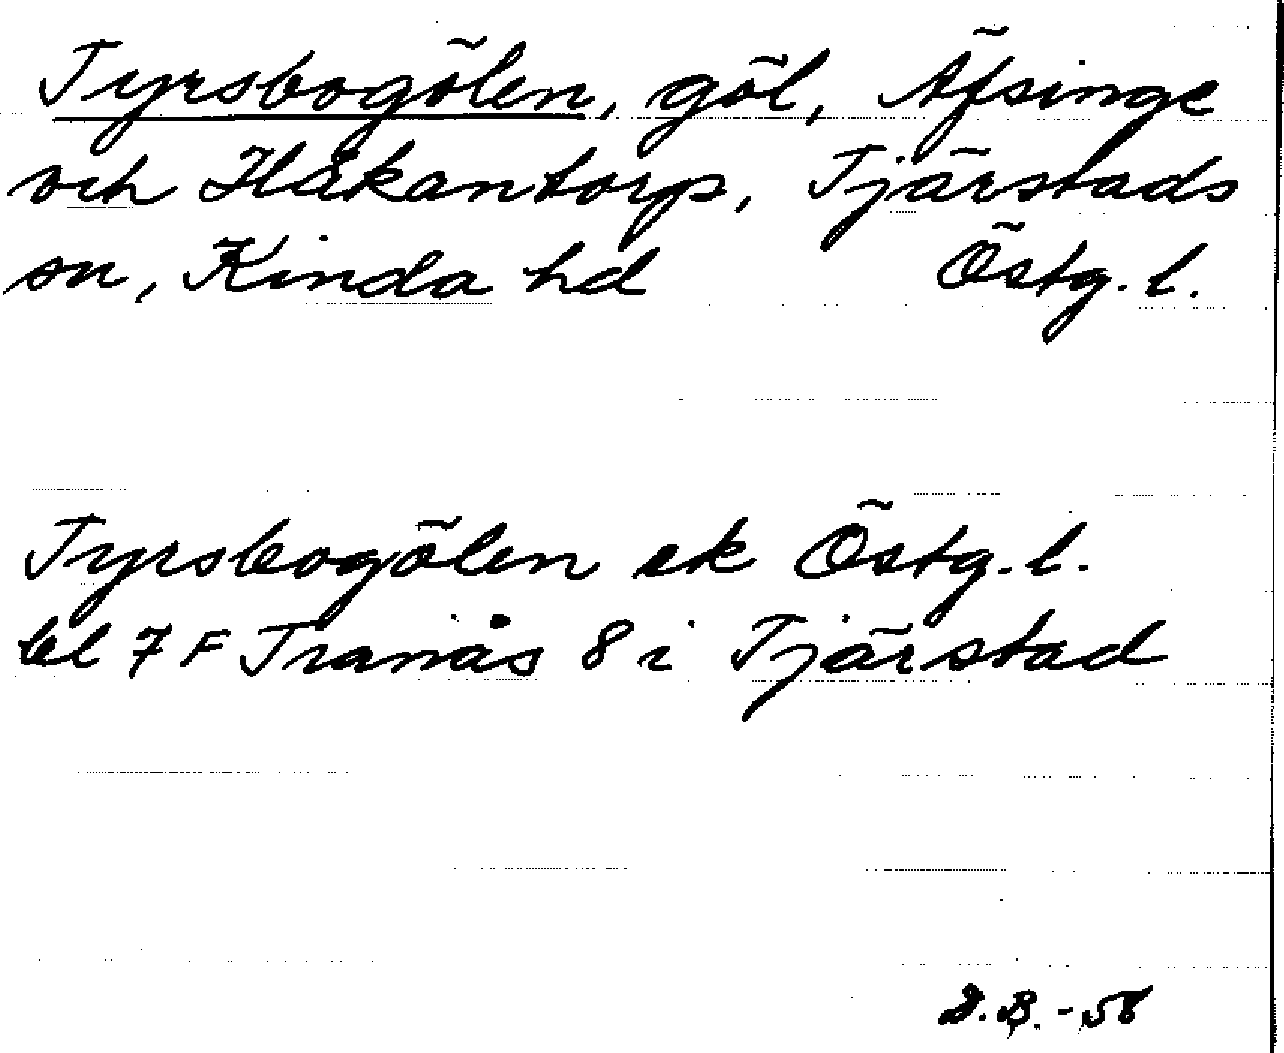 Tyrsbogölen, göl, Äfsinge
och Håkantorp, Tjärstads
sn, Kinda hd Östg. l.
Tyrsbogölen ek Östg. l.
bl 7 F Tranås 8 i Tjärstad
D.B. - 58